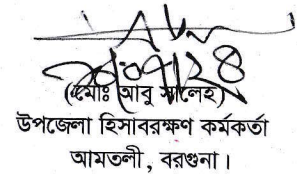 (মোঃ আবু সালেহ)
উপজেলা হিসাবরক্ষণ কর্মকর্তা
আমতলী, বরগুনা।